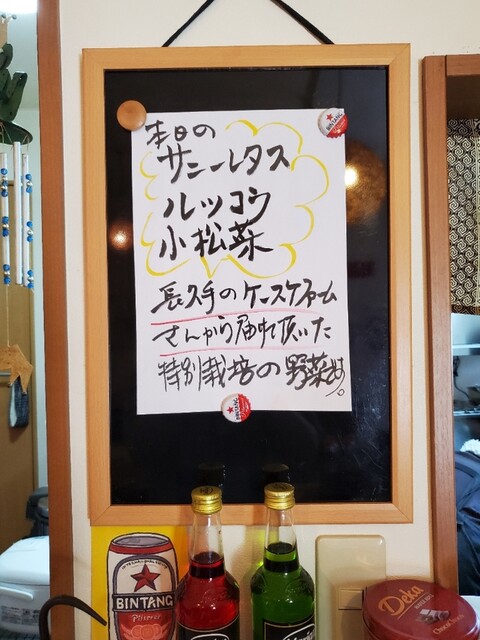 本日の
サニーレタス
ルッコラ
小松菜
長久手のケースケファーム
さんから届けて頂いた
特別栽培の野菜だよ。
BINTANG
BINTANG
Pilsener
Deka